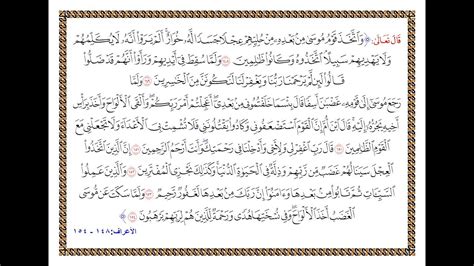 قال تعالى: ﴿ وَٱتَّخَذَ قَوْمُ مُوسَىٰ مِنۢ بَعْدِهِۦ مِنْ حُلِيِّهِمْ عِجْلًا جَسَدًا لَّهُۥ خُوَارٌ ۚ أَلَمْ يَرَوْا۟ أَنَّهُۥ لَا يُكَلِّمُهُمْ
وَلَا يَهْدِيهِمْ سَبِيلًا ۘ ٱتَّخَذُوهُ وَكَانُوا۟ ظَٰلِمِينَ ١٤٨ وَلَمَّا سُقِطَ فِىٓ أَيْدِيهِمْ وَرَأَوْا۟ أَنَّهُمْ قَدْ ضَلُّوا۟
قَالُوا۟ لَئِن لَّمْ يَرْحَمْنَا رَبُّنَا وَيَغْفِرْ لَنَا لَنَكُونَنَّ مِنَ ٱلْخَٰسِرِينَ ١٤٩ وَلَمَّا
رَجَعَ مُوسَىٰٓ إِلَىٰ قَوْمِهِۦ غَضْبَٰنَ أَسِفًا قَالَ بِئْسَمَا خَلَفْتُمُونِى مِنۢ بَعْدِىٓ ۖ أَعَجِلْتُمْ أَمْرَ رَبِّكُمْ ۖ وَأَلْقَى ٱلْأَلْوَاحَ وَأَخَذَ بِرَأْسِ
أَخِيهِ يَجُرُّهُۥٓ إِلَيْهِ ۚ قَالَ ٱبْنَ أُمَّ إِنَّ ٱلْقَوْمَ ٱسْتَضْعَفُونِى وَكَادُوا۟ يَقْتُلُونَنِى فَلَا تُشْمِتْ بِىَ ٱلْأَعْدَآءَ وَلَا تَجْعَلْنِى مَعَ
ٱلْقَوْمِ ٱلظَّٰلِمِينَ ١٥٠ قَالَ رَبِّ ٱغْفِرْ لِى وَلِأَخِى وَأَدْخِلْنَا فِى رَحْمَتِكَ ۖ وَأَنتَ أَرْحَمُ ٱلرَّٰحِمِينَ ١٥١ إِنَّ ٱلَّذِينَ ٱتَّخَذُوا۟
ٱلْعِجْلَ سَيَنَالُهُمْ غَضَبٌ مِّن رَّبِّهِمْ وَذِلَّةٌ فِى ٱلْحَيَوٰةِ ٱلدُّنْيَا ۚ وَكَذَٰلِكَ نَجْزِى ٱلْمُفْتَرِينَ ١٥٢ وَٱلَّذِينَ عَمِلُوا۟
ٱلسَّيِّـَٔاتِ ثُمَّ تَابُوا۟ مِنۢ بَعْدِهَا وَءَامَنُوٓا۟ إِنَّ رَبَّكَ مِنۢ بَعْدِهَا لَغَفُورٌ رَّحِيمٌ ١٥٣ وَلَمَّا سَكَتَ عَن مُّوسَى
ٱلْغَضَبُ أَخَذَ ٱلْأَلْوَاحَ ۖ وَفِى نُسْخَتِهَا هُدًى وَرَحْمَةٌ لِّلَّذِينَ هُمْ لِرَبِّهِمْ يَرْهَبُونَ ١٥٤ ﴾
الأعراف: ١٤٨ - ١٥٤